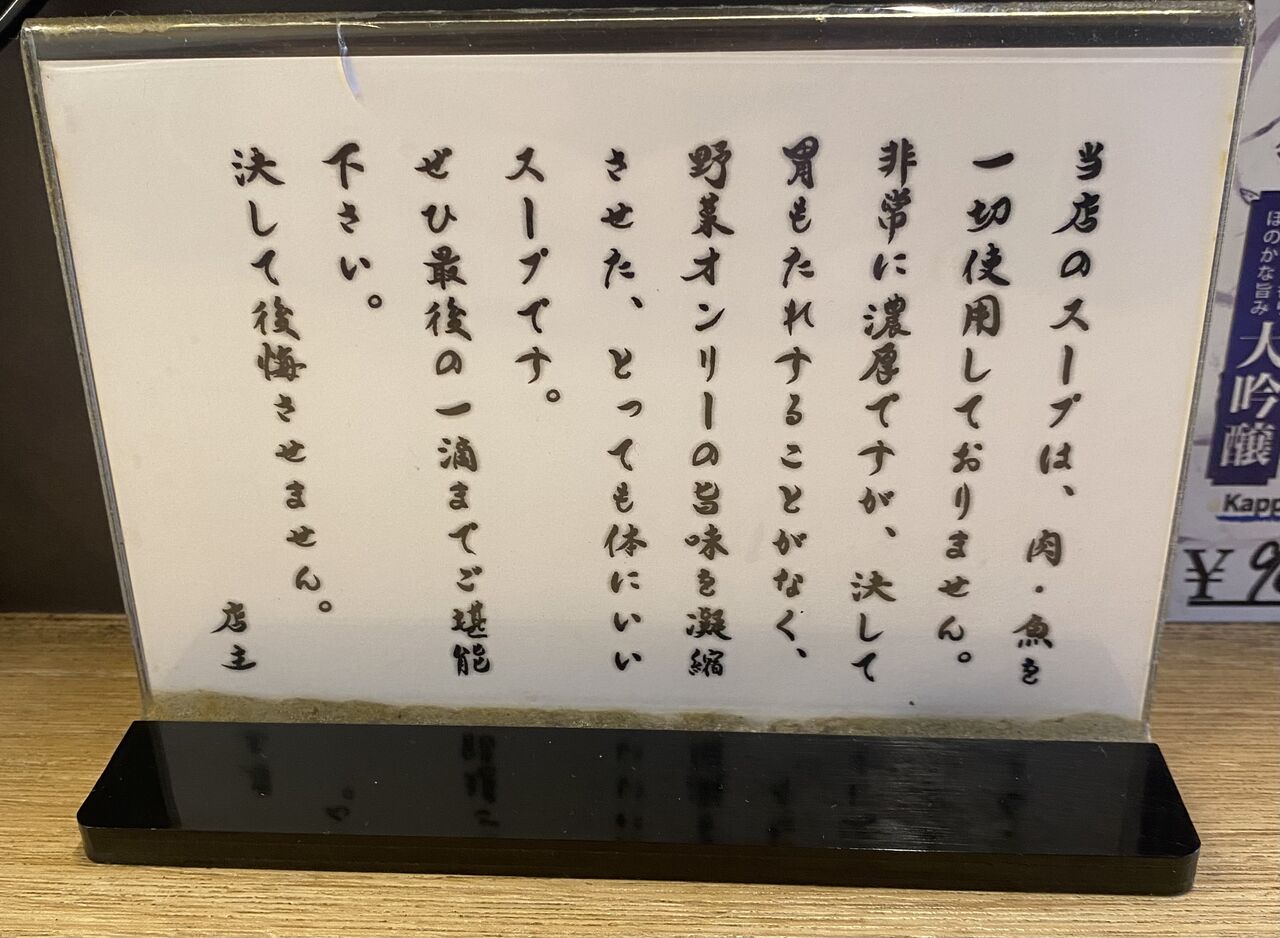 当店のスープは、肉・魚を
一切使用しておりません。
非常に濃厚ですが、決して
胃もたれすることがなく、
野菜オンリーの旨味を凝縮
させた、とっても体にいい
スープです。
ぜひ最後の一滴までご堪能
下さい。
決して後悔させません。
店主
ほのかな旨み
大吟醸
Kapp
¥9